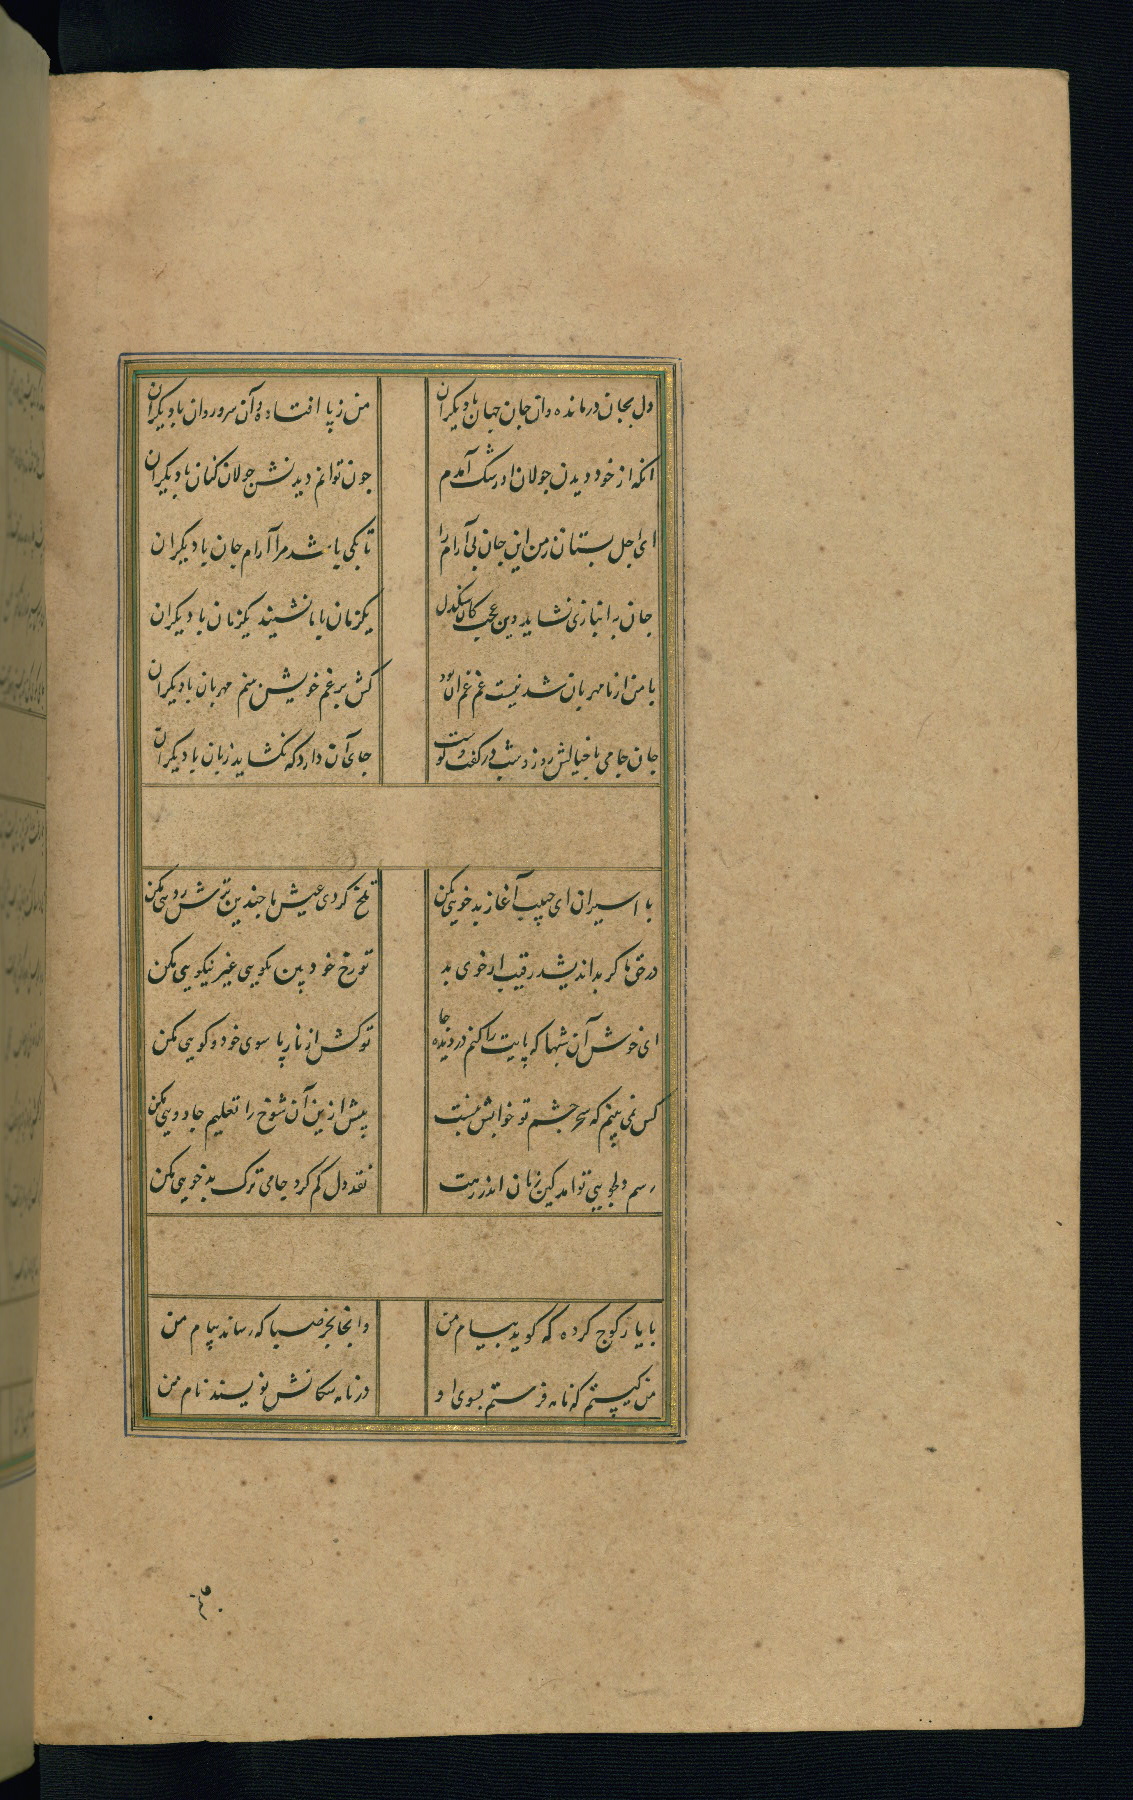 دل بجان درمانده وان جان جهان با دیکران من ز پا افتاده و آن سرو روان با دیکران
انکه از خود دیدن جولان او رشک آمدم جون توانم دیدنش جولان کنان با دیکران
ای اجل بستان ز من این جان بی آرام را تا بکی باشد مرا آرام جان با دیکران
جان به انبازی نشاید وین عجب کان سنکدل یکزمان با ما نشیند یکزمان با دیکران
با من ار نامهربان شد نیست غم غم آن بود کش برغم خویش بینم مهربان با دیکران
جان جامی با خیالش روز و شب در کفت و کوست جای آن دارد که نکشاید زبان با دیکران
با اسیران ای حبیب آغاز بدخویی مکن تلخ کردی عیش ما جندین ترش رویی مکن
در حق ما کر بد اندیشد رقیب از خوی بد تو رخ خود بین نکویی غیر نیکویی مکن
ای خوش آن شبها که پایت را کنم در دیده جا تو کشی از ناز پا سوی خود و کویی مکن
کس نمی بینم که سحر جشم تو خوابش نبست پیش ازین آن شوخ را تعلیم جادویی مکن
رسم دلجویی تو امد کین زمان اندر رهت نقد دل کم کرد جامی ترک بدخویی مکن
با یار کوج کرده که کوید پیام من وانجا بجز صبا که رساند پیام من
من کیستم که نامه فرستم بسوی او در نامه سکانش نویسند نام من